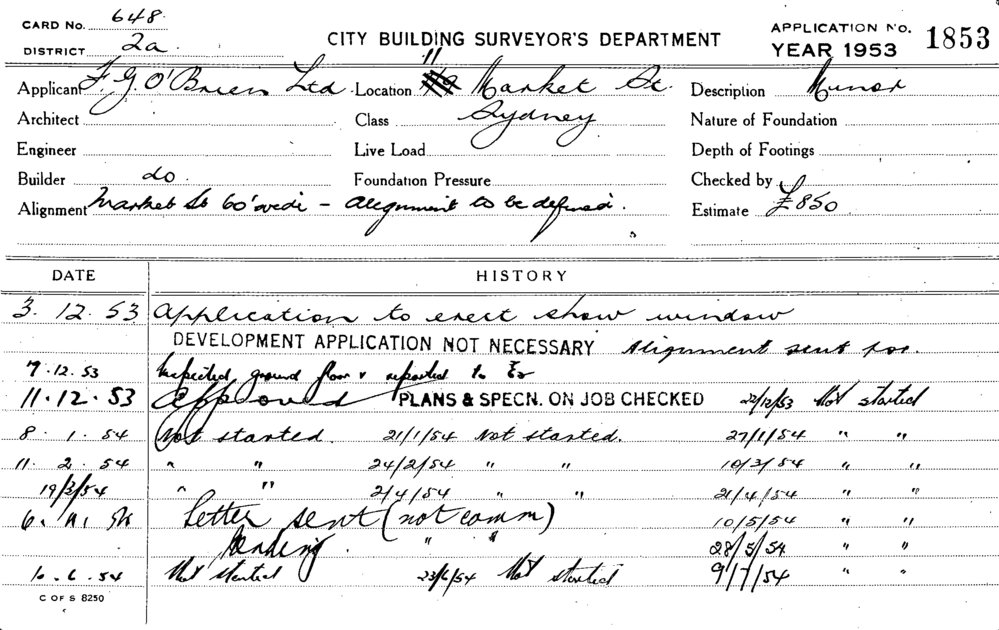 CARD No. 648
DISTRICT 2a
CITY BUILDING SURVEYOR'S DEPARTMENT
APPLICATION No. 1853
YEAR 1953
Applicant F. G. O'Brien Ltd Location 11 Market St. Description Minor
Architect Class Sydney Nature of Foundation
Engineer Live Load Depth of Footings
Builder do. Foundation Pressure Checked by
Alignment Market St 60' wide - alignment to be defined. Estimate £850
DATE HISTORY
3. 12. 53 Application to erect show window
DEVELOPMENT APPLICATION NOT NECESSARY Alignment sent for.
7.12.53 Inspected ground floor & reported to
11.12.53 Approved PLANS & SPECN. ON JOB CHECKED 22/12/53 Not started
8. 1. 54 Not started. 21/1/54 Not started. 27/1/54 " "
11. 2. 54 " " 24/2/54 " " 10/3/54 " "
19/3/54 " " 2/4/54 " " 21/4/54 " "
Letter sent (not comm) 10/5/54 " "
Pending " " 28/5/54 " "
10.6.54 Not started 23/6/54 Not started 9/7/54 " "
C OF S 8250